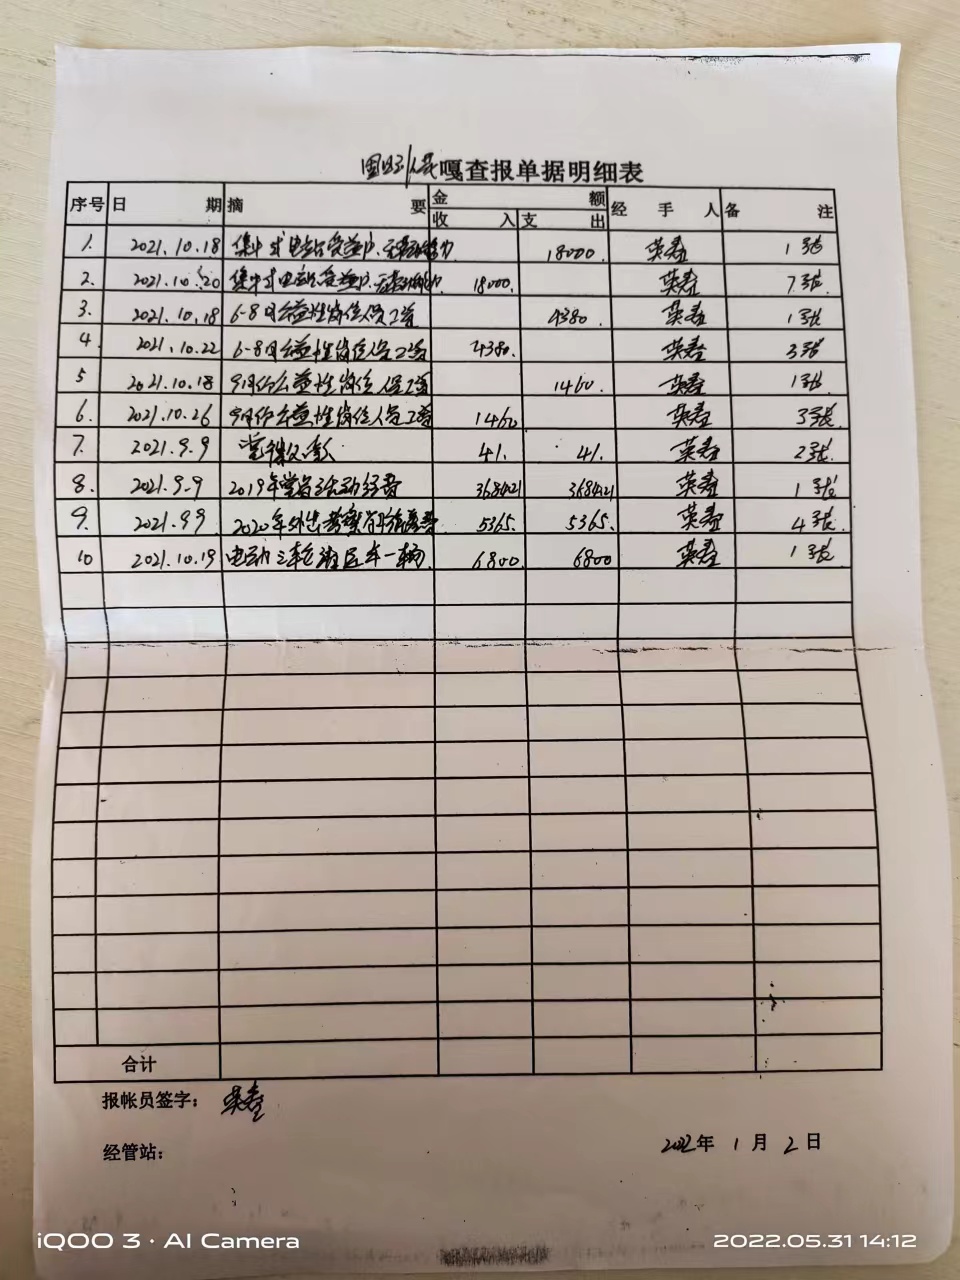 嘎查报单据明细表
序号 日期 摘要 金额 经手人 备注
收入 支出
1. 2021.10.18 集中式电站受益户, 18000. 英寿 1张
2. 2021.10.20 集中式电站受益户, 18000. 英寿 7张.
3. 2021.10.18 6-8月公益性岗位人员工资 4380. 英寿 1张
4. 2021.10.22 6-8月公益性岗位人员工资 4380. 英寿 3张
5 2021.10.18 9月份公益性岗位人员工资 1460. 英寿 1张.
6. 2021.10.26 9月份公益性岗位人员工资 1460 英寿 3张.
7. 2021.9.9 41. 41. 英寿 2张.
8. 2021.9.9 2019年党员活动经费 3684.21 3684.21 英寿 1张
9. 2021.9.9 2020年外出考察 5365. 5365. 英寿 4张.
10 2021.10.19 电动三轮 车一辆. 6800. 6800 英寿 1张
合计
报帐员签字: 英寿
经管站:
2022年 1月 2日
iQOO 3 · AI Camera
2022.05.31 14:12